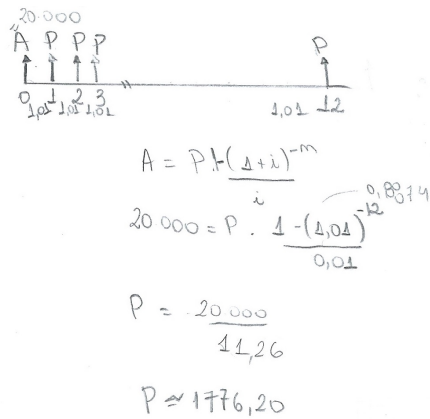 20.000
"A P P P P
0 1 2 3 12
1,01 1,01 1,01 1,01
A = P . 1-(1+i)^-n / i
0,88074
20.000 = P . 1-(1,01)^-12 / 0,01
P = 20.000 / 11,26
P ≈ 1776,20